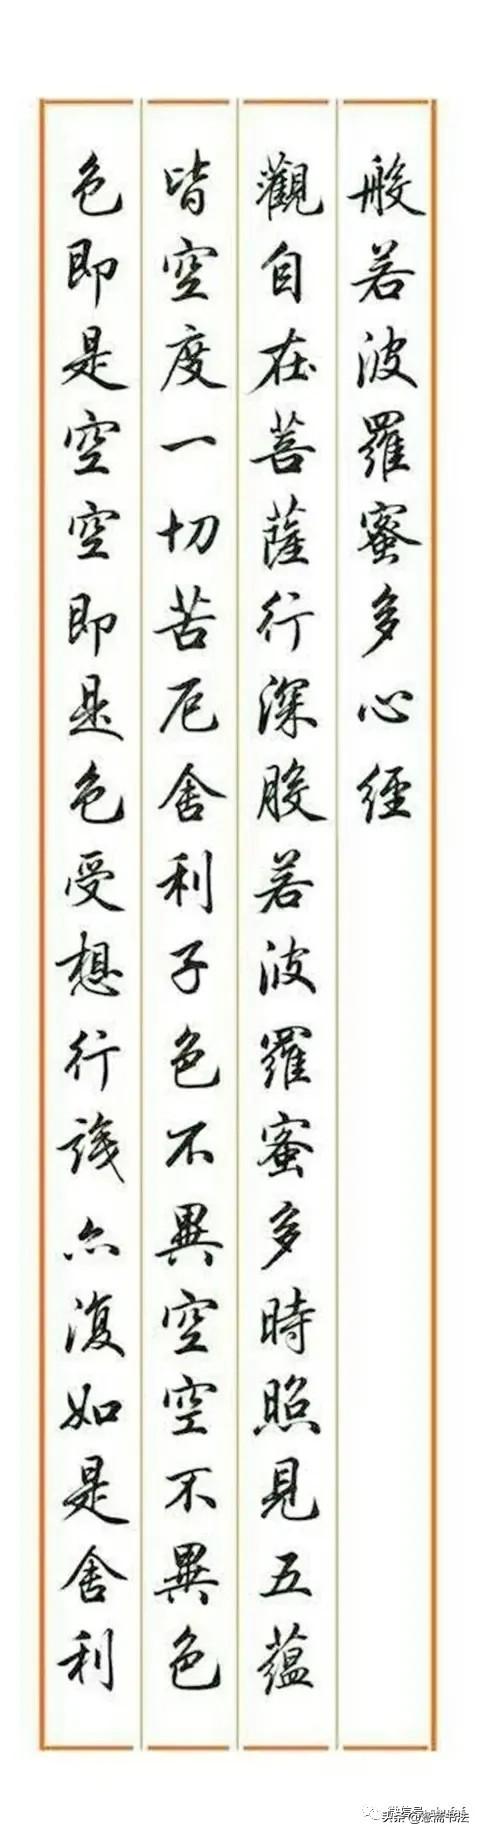 般若波羅蜜多心經
觀自在菩薩行深般若波羅蜜多時照見五蘊
皆空度一切苦厄舍利子色不異空空不異色
色即是空空即是色受想行識亦復如是舍利